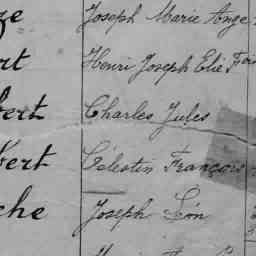 ze Joseph Marie Ange
rt Henri Joseph Elie
bert Charles Jules
bert Célestin François
che Joseph Léon